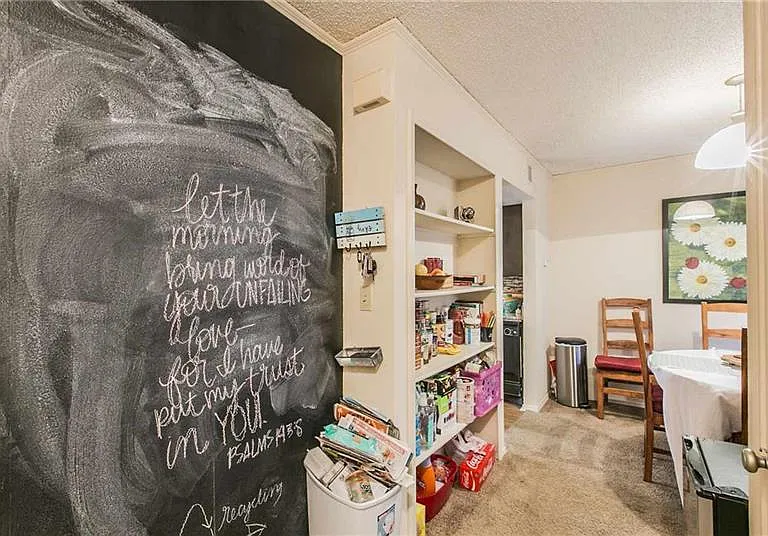 let the
morning
bring word of
your UNFAILING
love-
for I have
put my trust
in YOU.
PSALMS 143:8
recycling
Coca-Cola